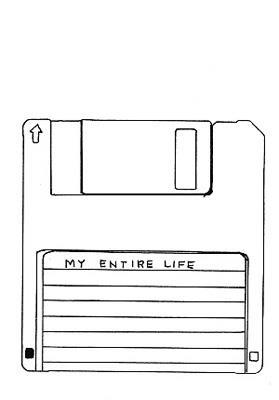 MY ENTIRE LIFE